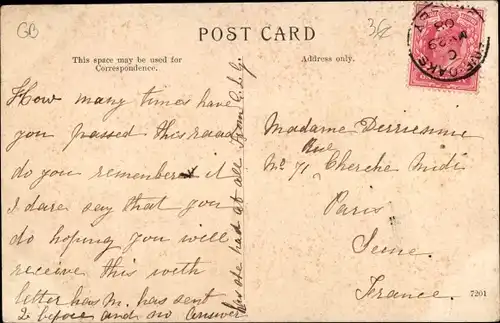 GB
3 1/2
POST CARD
This space may be used for
Correspondence.
Address only.
How many times have
you passed this road
do you remember it
I dare say that you
do hoping you will
receive this with
letter has M. has sent
2 before and no answer
has she had at all from
Madame Derriennic
No 71 Rue Cherche Midi
Paris
Seine.
France.
7201